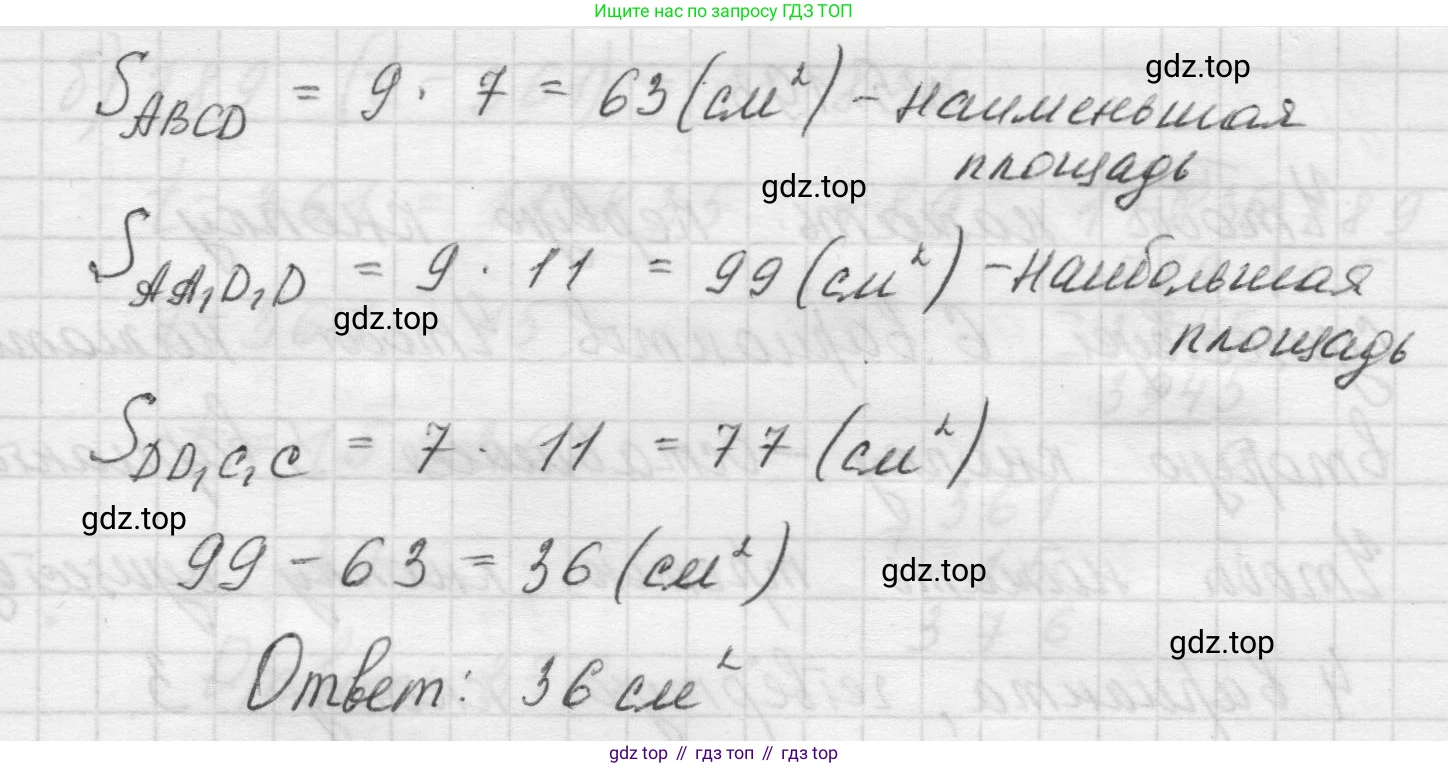 Ищите нас по запросу ГДЗ ТОП
S ABCD = 9 · 7 = 63 (см²) – наименьшая
gdz.top
площадь
gdz.top
S AA₁D₁D = 9 · 11 = 99 (см²) – наибольшая
gdz.top
площадь
S DD₁C₁C = 7 · 11 = 77 (см²)
gdz.top
99 – 63 = 36 (см²)
gdz.top
gdz.top
Ответ: 36 см²
gdz top // гдз топ // гдз top